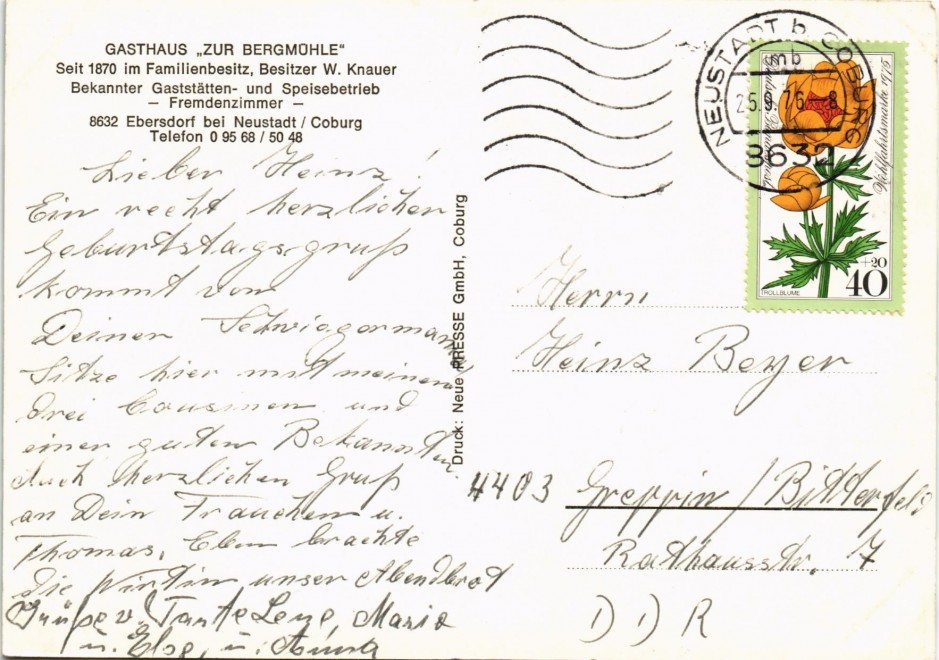 GASTHAUS „ZUR BERGMÜHLE“
Seit 1870 im Familienbesitz, Besitzer W. Knauer
Bekannter Gaststätten- und Speisebetrieb
— Fremdenzimmer —
8632 Ebersdorf bei Neustadt / Coburg
Telefon 0 95 68 / 50 48
Lieber Heinz!
Ein recht herzlicher
Geburtstagsgruß
kommt von
Deiner Schwiegermama
Sitze hier mit meinen
drei Cousinen und
einer guten Bekannten.
Auch herzlichen Gruß
an Dein Frauchen u.
Thomas. Eben brachte
die Wirtin unser Abendbrot
Grüße v. Tante Lene, Maria
u. Else, u. Anna
Druck: Neue PRESSE GmbH, Coburg
NEUSTADT b COBURG
mb
25.9.76 - 8
8632
Deutsche Bundespost
Wohlfahrtsmarke 1975
+20
40
TROLLBLUME
Herrn
Heinz Beyer
4403 Greppin / Bitterfeld
Rathausstr. 7
DDR